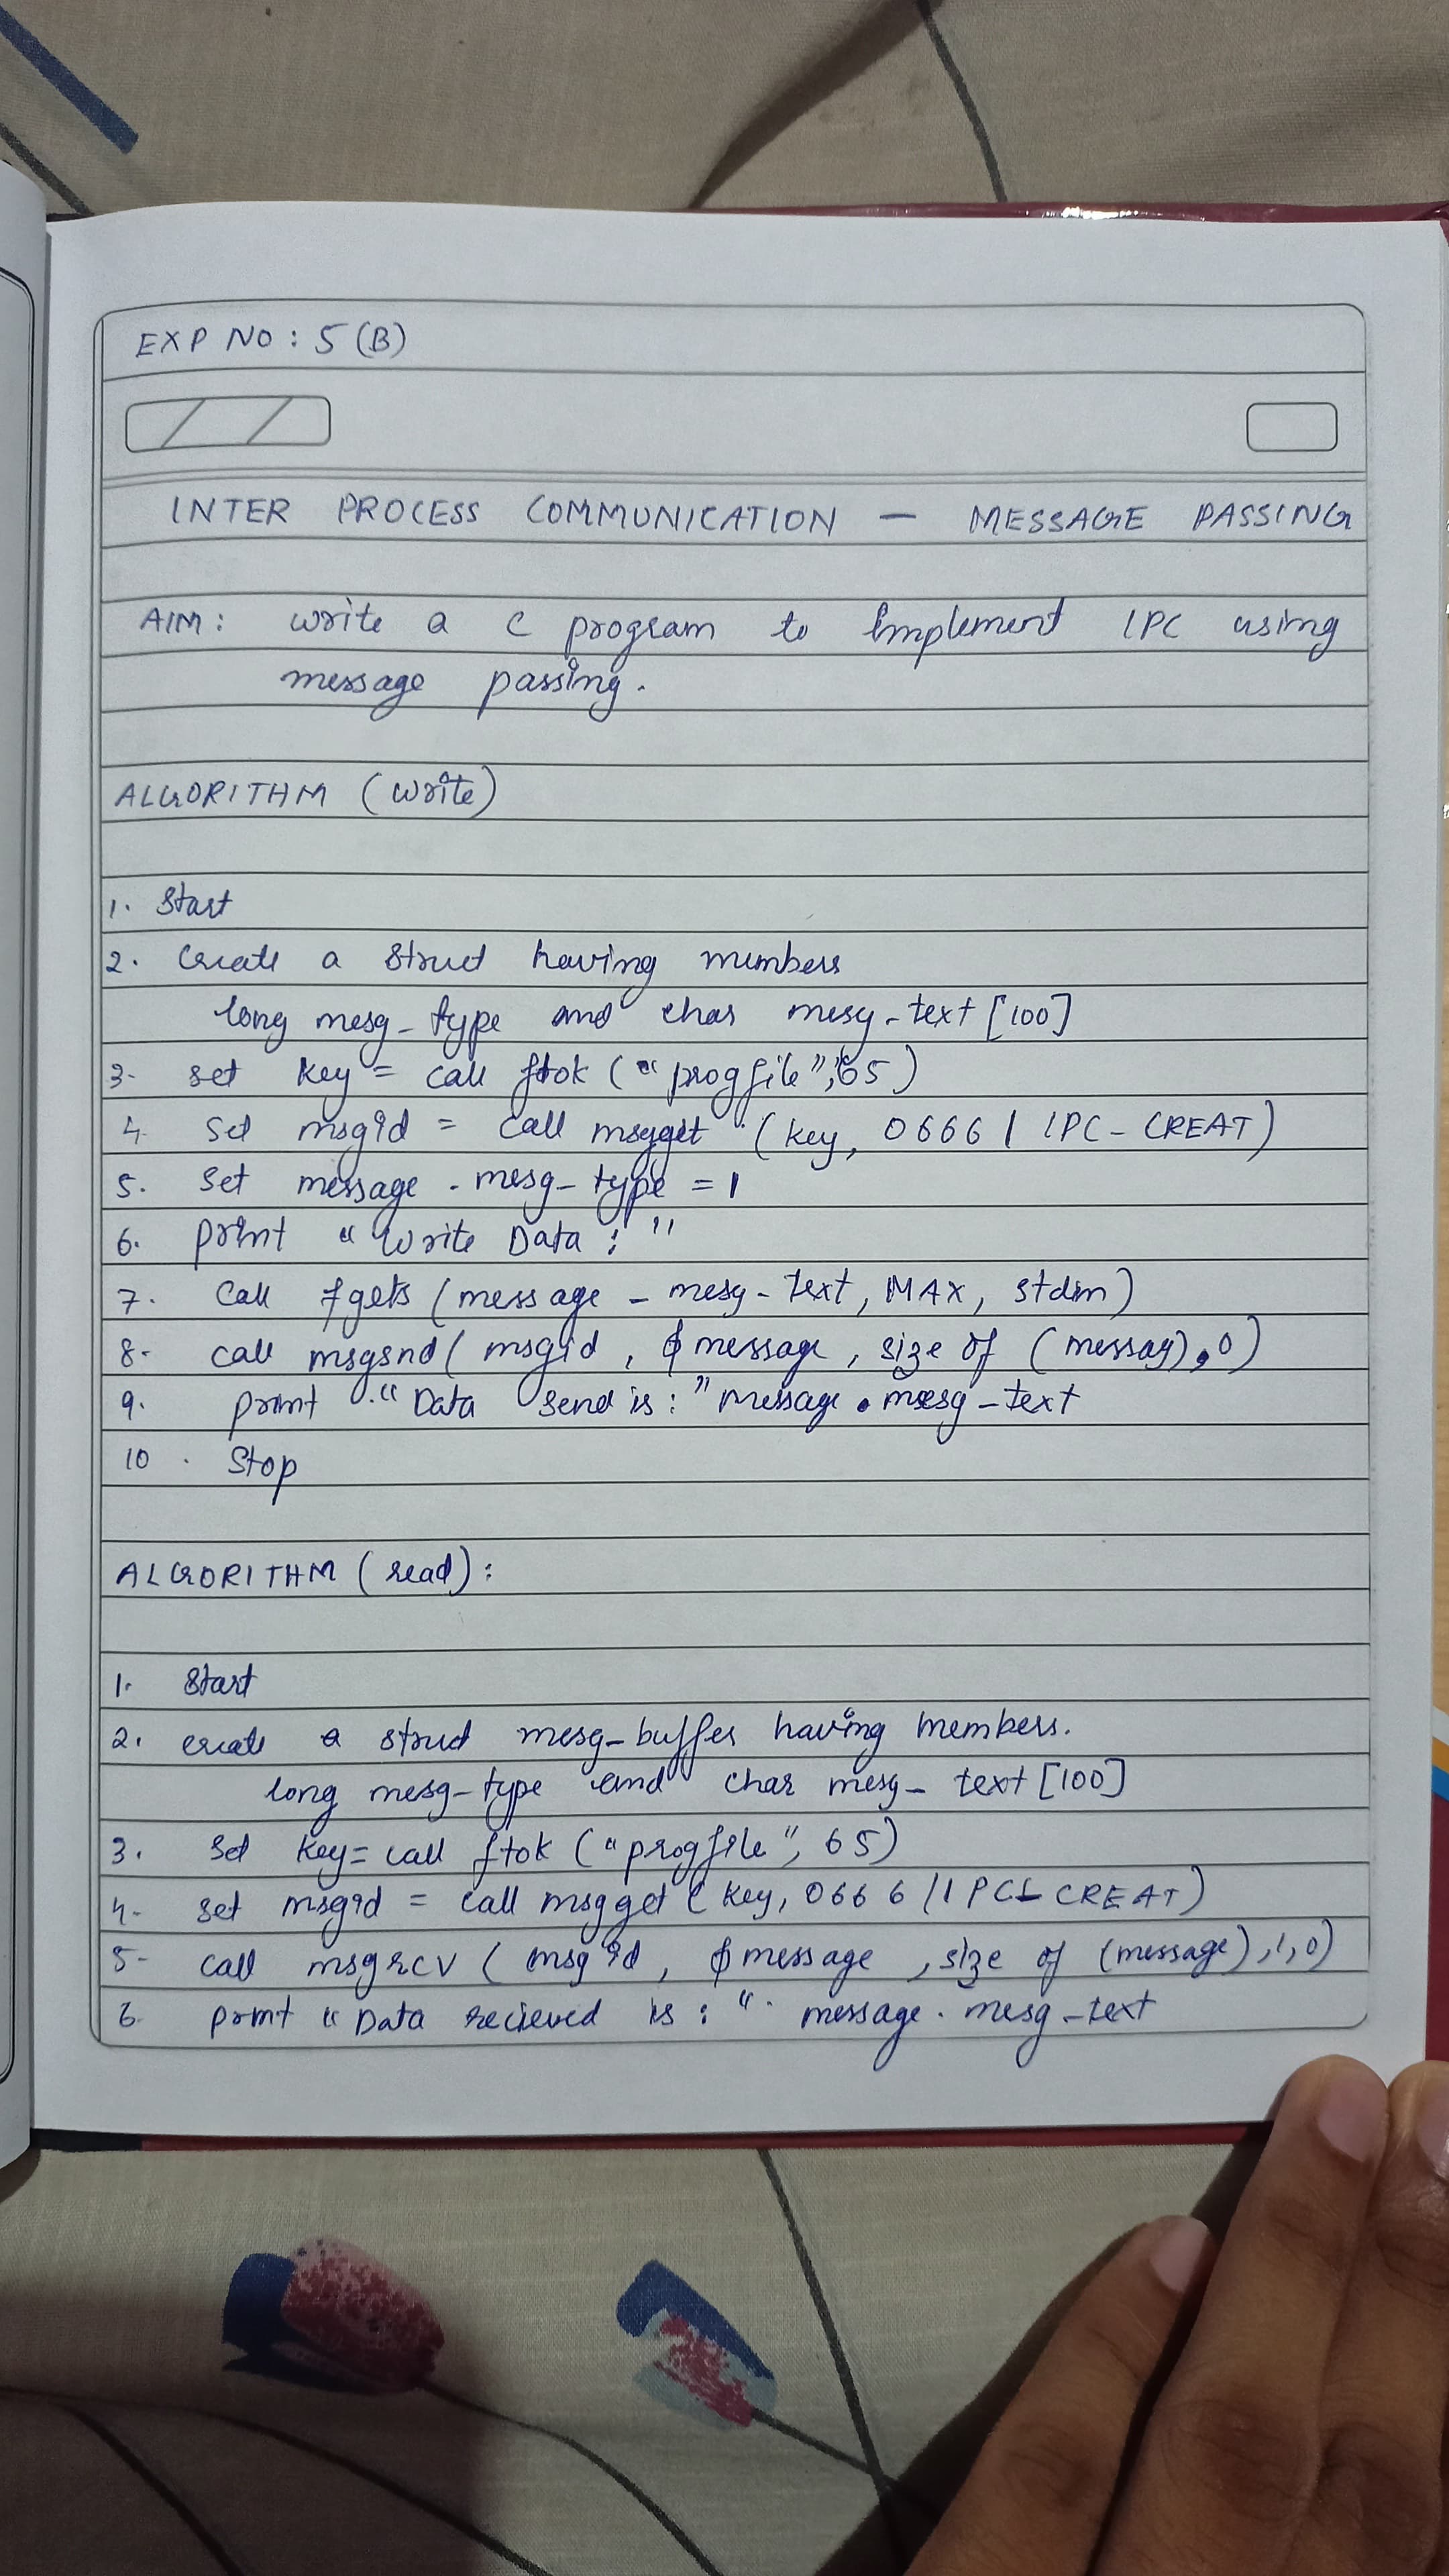 EXP NO : 5 (B)
INTER PROCESS COMMUNICATION — MESSAGE PASSING
AIM : write a c program to Implement IPC using
message passing.
ALGORITHM (write)
1. Start
2. create a struct having members
long mesg_type and char mesg_text [100]
3. set key = call ftok ("progfile", 65)
4. set msgid = call msgget (key, 0666 | IPC_CREAT)
5. set message . mesg_type = 1
6. print "Write Data : "
7. call fgets (message _ mesg_text, MAX, stdin)
8. call msgsnd ( msgid , &message , size of (messag), 0)
9. print "Data send is : " message . mesg_text
10 . Stop
ALGORITHM ( read ) :
1. Start
2. create a struct mesg_buffer having members.
long mesg_type and char mesg_ text [100]
3. set key = call ftok ("progfile", 65)
4. set msgid = call msgget ( key, 0666 | IPC_CREAT)
5. call msgrcv ( msgid , &message , size of (message), 1, 0)
6. print "Data recieved is : " message . mesg_text